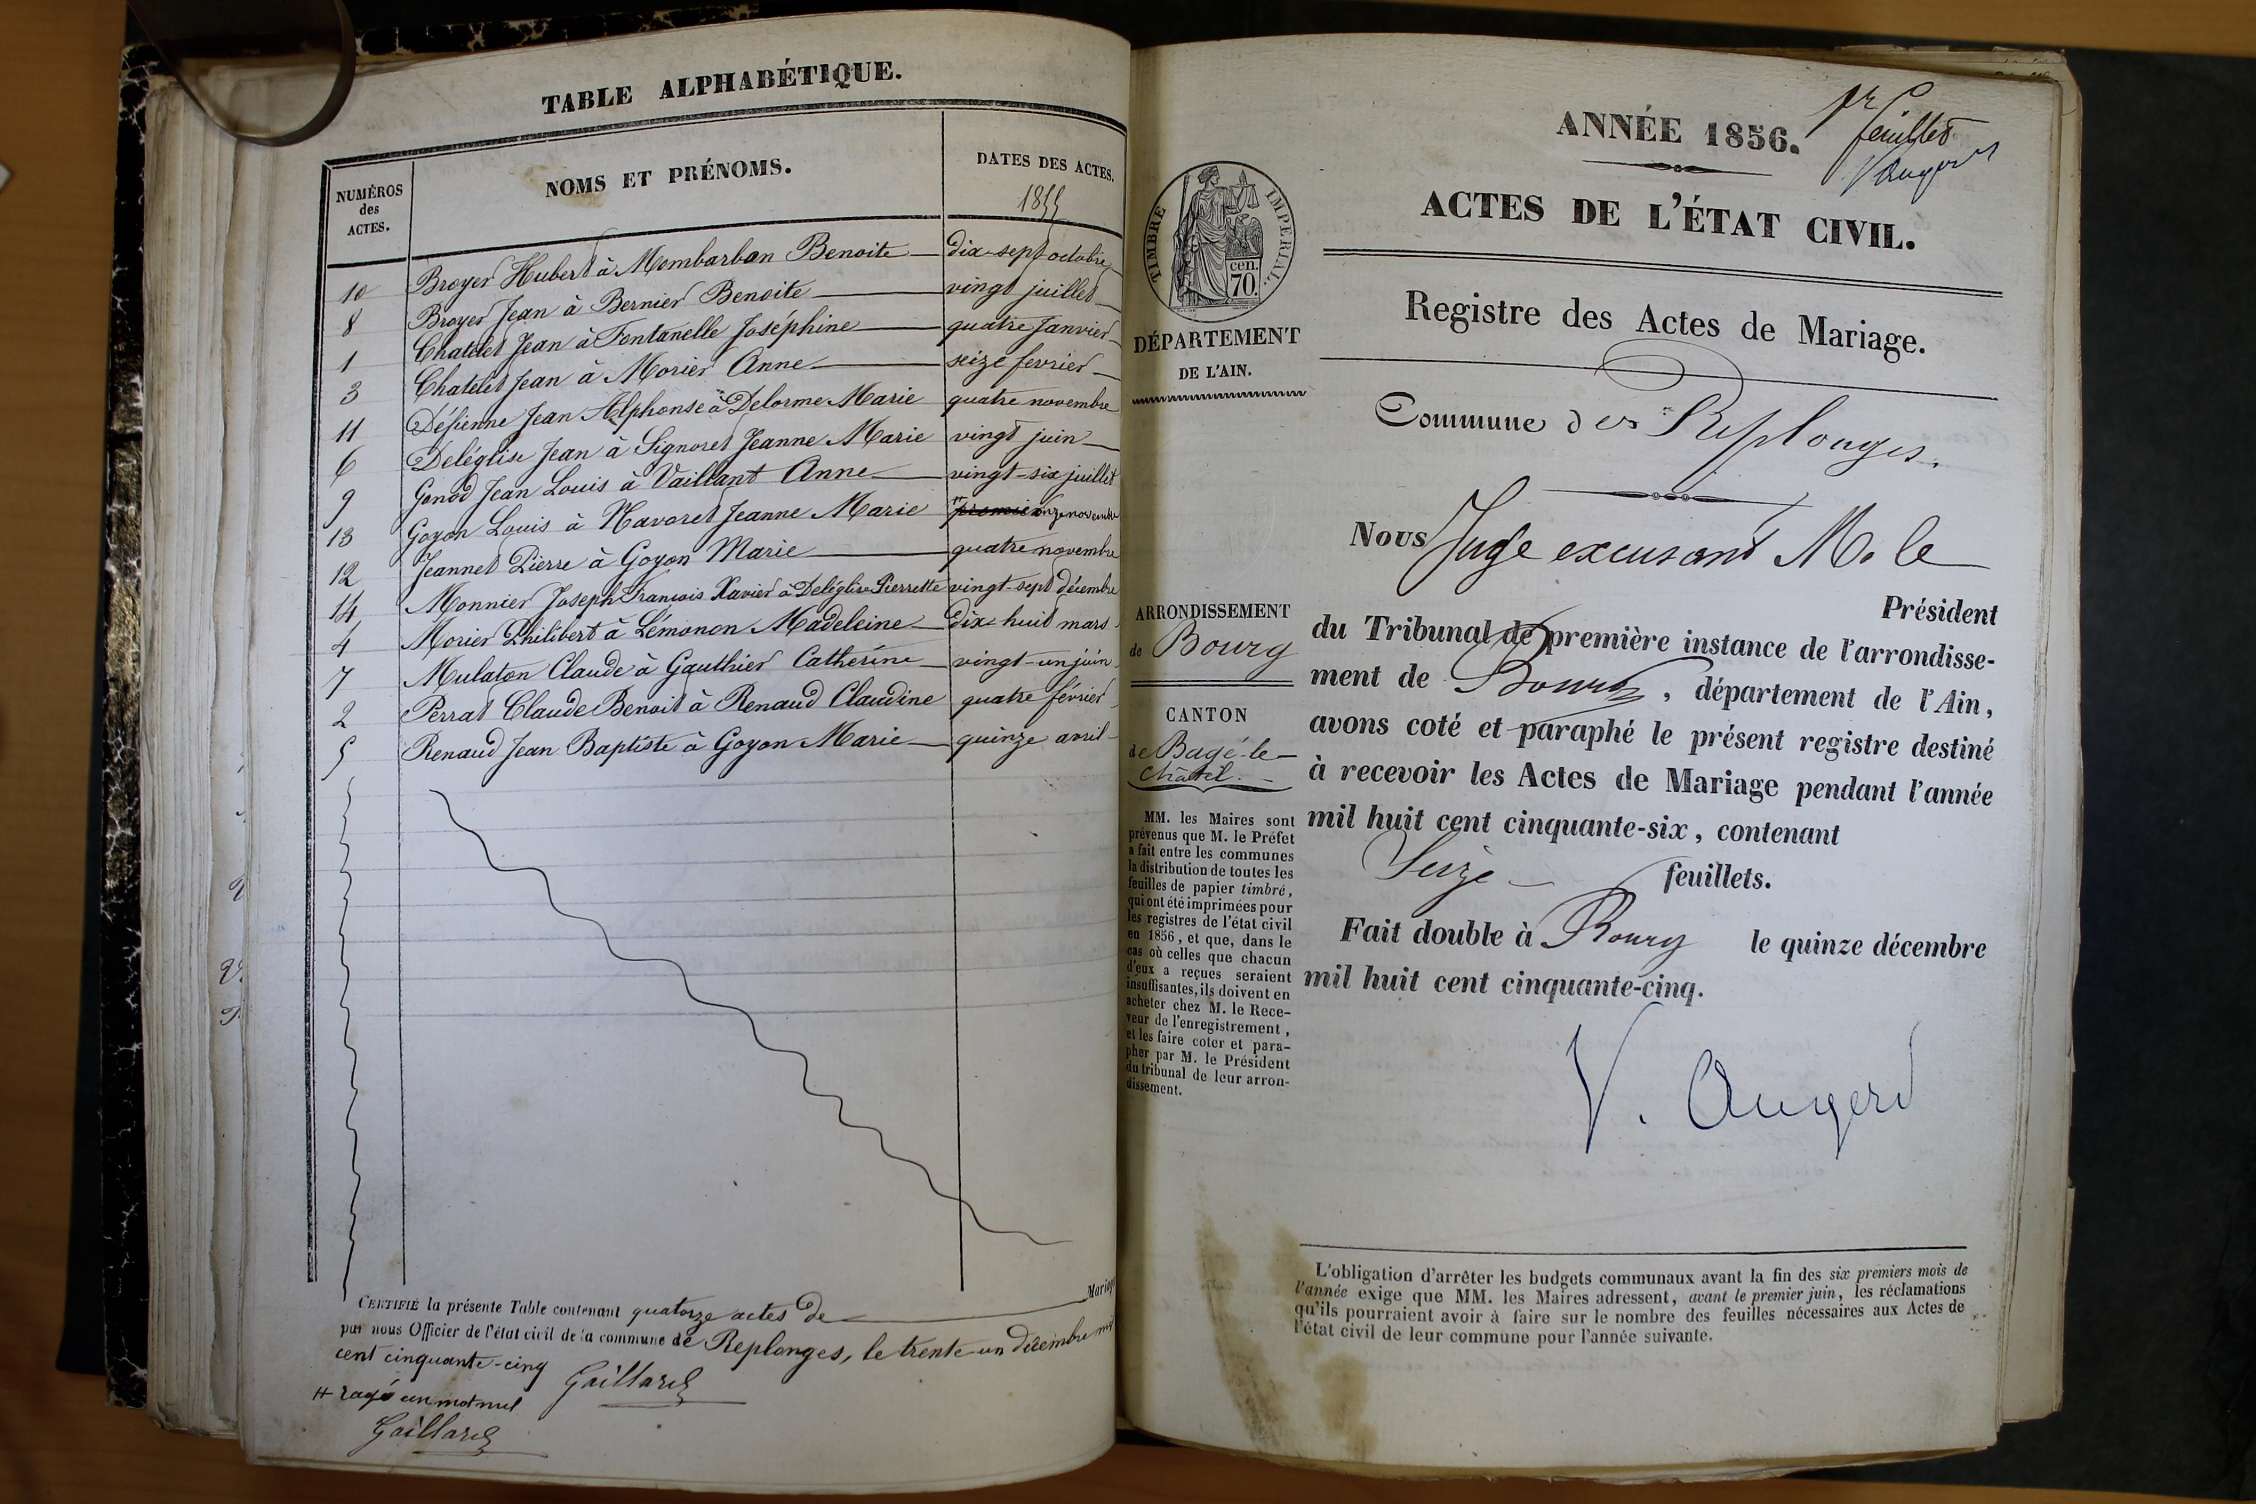 TABLE ALPHABÉTIQUE.
NUMÉROS des ACTES. NOMS ET PRÉNOMS. DATES DES ACTES. 1855
10 Broyer Hubert à Mombarbon Benoite dix-sept octobre
8 Broyer Jean à Bernier Benoite vingt juillet
1 Chatelet Jean à Fontanelle Joséphine quatre Janvier
3 Chatelet Jean à Morier Anne seize fevrier
11 Jean Alphonse à Delorme Marie quatre novembre
6 Deléglise Jean à Signoret Jeanne Marie vingt juin
9 Gonod Jean Louis à Vaillant Anne vingt-six juillet
13 Goyon Louis à Navoret Jeanne Marie onze novembre
12 Jeannet Pierre à Goyon Marie quatre novembre
14 Monnier Joseph François Xavier à Deléglise Pierrette vingt-sept décembre
4 Morier Philibert à Lémonon Madeleine dix-huit mars
7 Mulaton Claude à Gauthier Catherine vingt-un juin
2 Perrat Claude Benoit à Renaud Claudine quatre février
5 Renaud Jean Baptiste à Goyon Marie quinze avril
CERTIFIÉ la présente Table contenant quatorze actes de Mariage
par nous Officier de l'état civil de la commune de Replonges, le trente-un décembre mil
cent cinquante-cinq Gaillard
# rayé un mot nul
Gaillard
1er feuillet
V Augerd
ANNÉE 1856.
ACTES DE L'ÉTAT CIVIL.
TIMBRE IMPÉRIAL.
cen. 70.
DÉPARTEMENT
DE L'AIN.
ARRONDISSEMENT
de Bourg
CANTON
de Bagé-le-
Châtel.
MM. les Maires sont
prévenus que M. le Préfet
a fait entre les communes
la distribution de toutes les
feuilles de papier timbré,
qui ont été imprimées pour
les registres de l'état civil
en 1856, et que, dans le
cas où celles que chacun
d'eux a reçues seraient
insuffisantes, ils doivent en
acheter chez M. le Rece-
veur de l'enregistrement,
et les faire coter et para-
pher par M. le Président
du tribunal de leur arron-
dissement.
Registre des Actes de Mariage.
Commune de Replonges.
Nous Juge excusant M. le
Président
du Tribunal de première instance de l'arrondisse-
ment de Bourg, département de l'Ain,
avons coté et paraphé le présent registre destiné
à recevoir les Actes de Mariage pendant l'année
mil huit cent cinquante-six, contenant
Seize feuillets.
Fait double à Bourg le quinze décembre
mil huit cent cinquante-cinq.
V. Augerd
L'obligation d'arrêter les budgets communaux avant la fin des six premiers mois de
l'année exige que MM. les Maires adressent, avant le premier juin, les réclamations
qu'ils pourraient avoir à faire sur le nombre des feuilles nécessaires aux Actes de
l'état civil de leur commune pour l'année suivante.